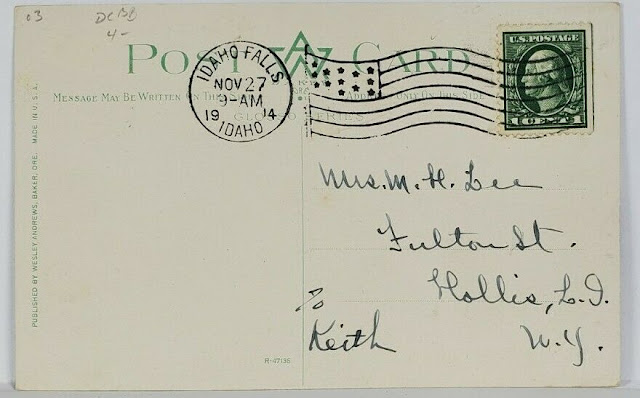 03
4-
POST CARD
MESSAGE MAY BE WRITTEN ON THIS SIDE
ONLY ON THIS SIDE
IDAHO FALLS
NOV 27
9-AM
1914
IDAHO
U.S. POSTAGE
1 CENT 1
Mrs. M. H. Lee
Fulton St.
Hollis, L.I.
N.Y.
Keith
R-47136
PUBLISHED BY WESLEY ANDREWS, BAKER, ORE. MADE IN U.S.A.